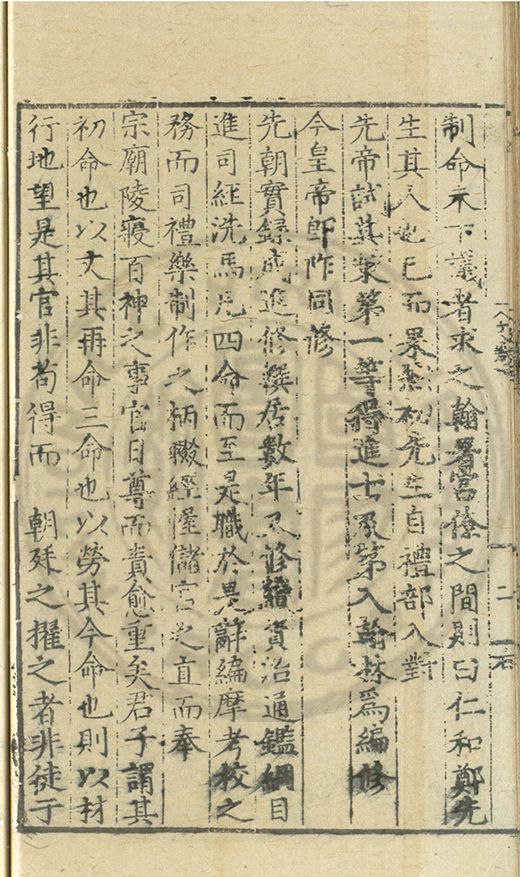 制命未下議者求之翰署宮僚之間則曰仁和鄭先
生其人也已而果然初先生自禮部入對
先帝試其策第一等得進士及第入翰林為編修
今皇帝卽阼同修
先朝實錄成進修撰居數年又修續資治通鑑綱目
進司經洗馬凡四命而至是職於是辭編摩考校之
務而司禮樂制作之柄輟經渥儲宮之直而奉
宗廟陵寢百神之事官日尊而責愈重矣君子謂其
初命也以文其再命三命也以勞其今命也則以材
行地望是其官非苟得而 朝廷之擢之者非徒于
二